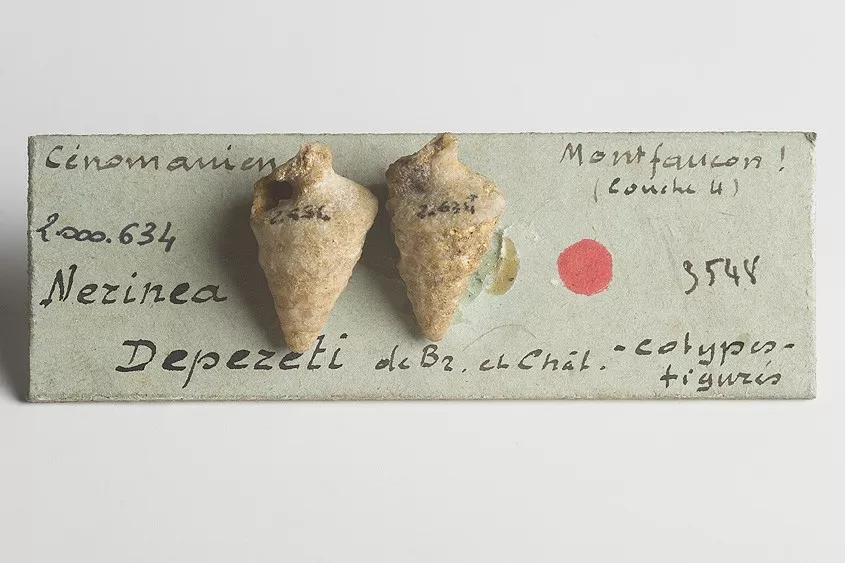 Cénomanien
Montfaucon !
(Couche 4)
2.000.634
3548
Nerinea
Depereti de Br. et Chât. - cotypes -
figurés